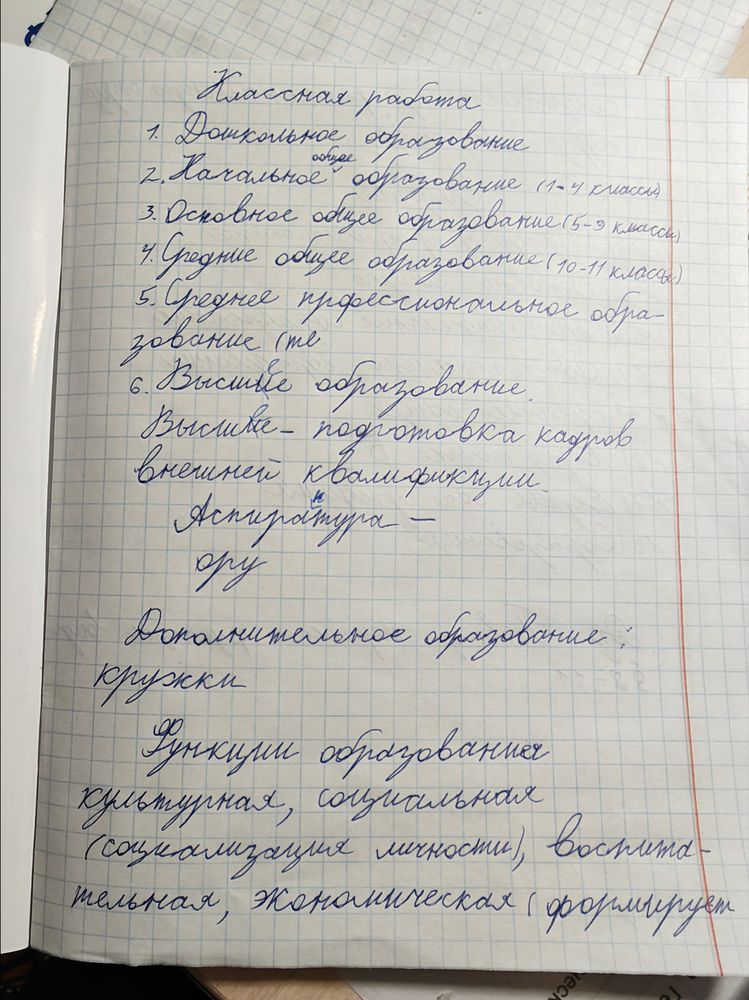 Классная работа
1. Дошкольное образование
2. Начальное общее образование (1-4 классы)
3. Основное общее образование (5-9 классы)
4. Средние общее образование (10-11 классы)
5. Среднее профессиональное обра-
зование (те
6. Высшее образование.
Высшее – подготовка кадров
внешней квалификции.
Аспирантура –
ору
Дополнительное образование:
кружки
Функции образования
культурная, социальная
(социализация личности), воспита-
тельная, экономическая (формирует